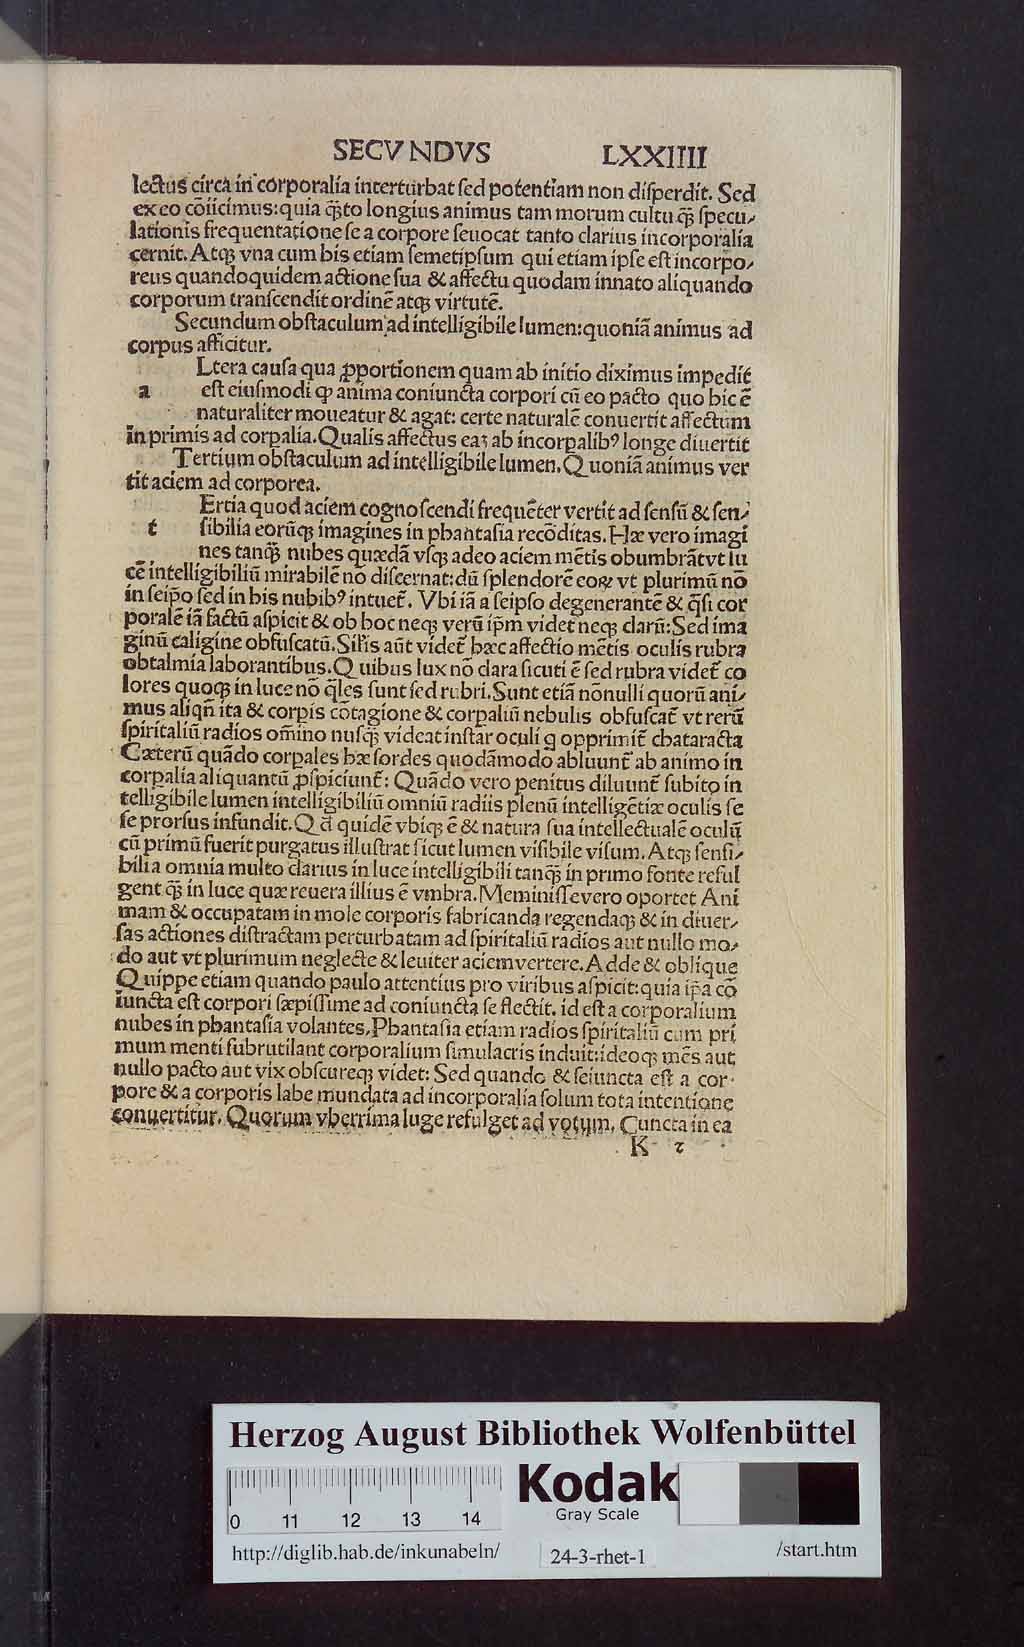 SECVNDVS LXXIIII
lectus circa incorporalia interturbat sed potentiam non disperdit. Sed
ex eo cōiicimus: quia q̃to longius animus tam morum cultu q̃ specu-
lationis frequentatione se a corpore seuocat tanto clarius incorporalia
cernit. Atq; vna cum his etiam semetipsum qui etiam ipse est incorpo-
reus quandoquidem actione sua & affectu quodam innato aliquando
corporum transcendit ordinē atq; virtutē.
Secundum obstaculum ad intelligibile lumen: quoniā animus ad
corpus afficitur.
Ltera causa qua ꝓportionem quam ab initio diximus impedit
a est eiusmodi ꝙ anima coniuncta corpori cū eo pacto quo hic ē
naturaliter moueatur & agat: certe naturalē conuertit affectum
in primis ad corꝑalia. Qualis affectus eaꝫ ab incorꝑalibꝰ longe diuertit
Tertium obstaculum ad intelligibile lumen. Quoniā animus ver
tit aciem ad corporea.
Ertia quod aciem cognoscendi frequēter vertit ad sensū & sen-
t sibilia eorūq; imagines in phantasia recōditas. Hæ vero imagi
nes tanq̃ nubes quædā vsq; adeo aciem mētis obumbrāt vt lu
cē intelligibiliū mirabilē nō discernat: dū splendorē eoꝝ vt plurimū nō
in seip̄o sed in his nubibꝰ intuet̄. Vbi iā a seipso degenerantē & q̄si cor
poralē iā factū aspicit & ob hoc neq; verū ip̄m videt neq; clarū: Sed ima
ginū caligine obfuscatū. Silis aūt videt̄ hæc affectio mētis oculis rubra
obtalmia laborantibus. Quibus lux nō clara sicuti ē sed rubra videt̄ co
lores quoq; in luce nō q̄les sunt sed rubri. Sunt etiā nōnulli quorū ani-
mus aliqn̄ ita & corꝑis cōtagione & corꝑaliū nebulis obfuscat̄ vt rerū
spiritaliū radios om̄ino nusq̃ videat instar oculi q opprimit̄ chataracta
Cæterū quādo corꝑales hæ sordes quodāmodo abluunt̄ ab animo in
corꝑalia aliquantū ꝑspiciunt̄: Quādo vero penitus diluunt̄ subito in
telligibile lumen intelligibiliū omniū radiis plenū intelligētiæ oculis se
se prorsus infundit. Qd̄ quidē vbiq; ē & natura sua intellectualē oculū
cū primū fuerit purgatus illustrat sicut lumen visibile visum. Atq; sensi-
bilia omnia multo clarius in luce intelligibili tanq̃ in primo fonte reful
gent q̃ in luce quæ reuera illius ē vmbra. Meminisse vero oportet Ani
mam & occupatam in mole corporis fabricanda regendaq; & in diuer-
sas actiones distractam perturbatam ad spiritaliū radios aut nullo mo-
do aut vt plurimum neglecte & leuiter aciem vertere. Adde & oblique
Quippe etiam quando paulo attentius pro viribus aspicit: quia ip̄a cō
iuncta est corpori sæpissime ad coniuncta se flectit. id est a corporalium
nubes in phantasia volantes. Phantasia etiam radios spiritaliū cum pri
mum menti subrutilant corporalium simulacris induit: ideoq; mēs aut
nullo pacto aut vix obscureq; videt: Sed quando & seiuncta est a cor-
pore & a corporis labe mundata ad incorporalia solum tota intentione
conuertitur. Quorum vberrima luge refulget ad votum. Cuncta in ea
K 2
Herzog August Bibliothek Wolfenbüttel
Kodak
Gray Scale
0 11 12 13 14
http://diglib.hab.de/inkunabeln/ 24-3-rhet-1 /start.htm